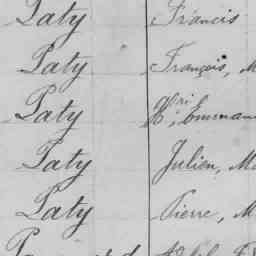 Paty Francis
Paty François, M
Paty
Paty Julien, M
Paty Pierre, M